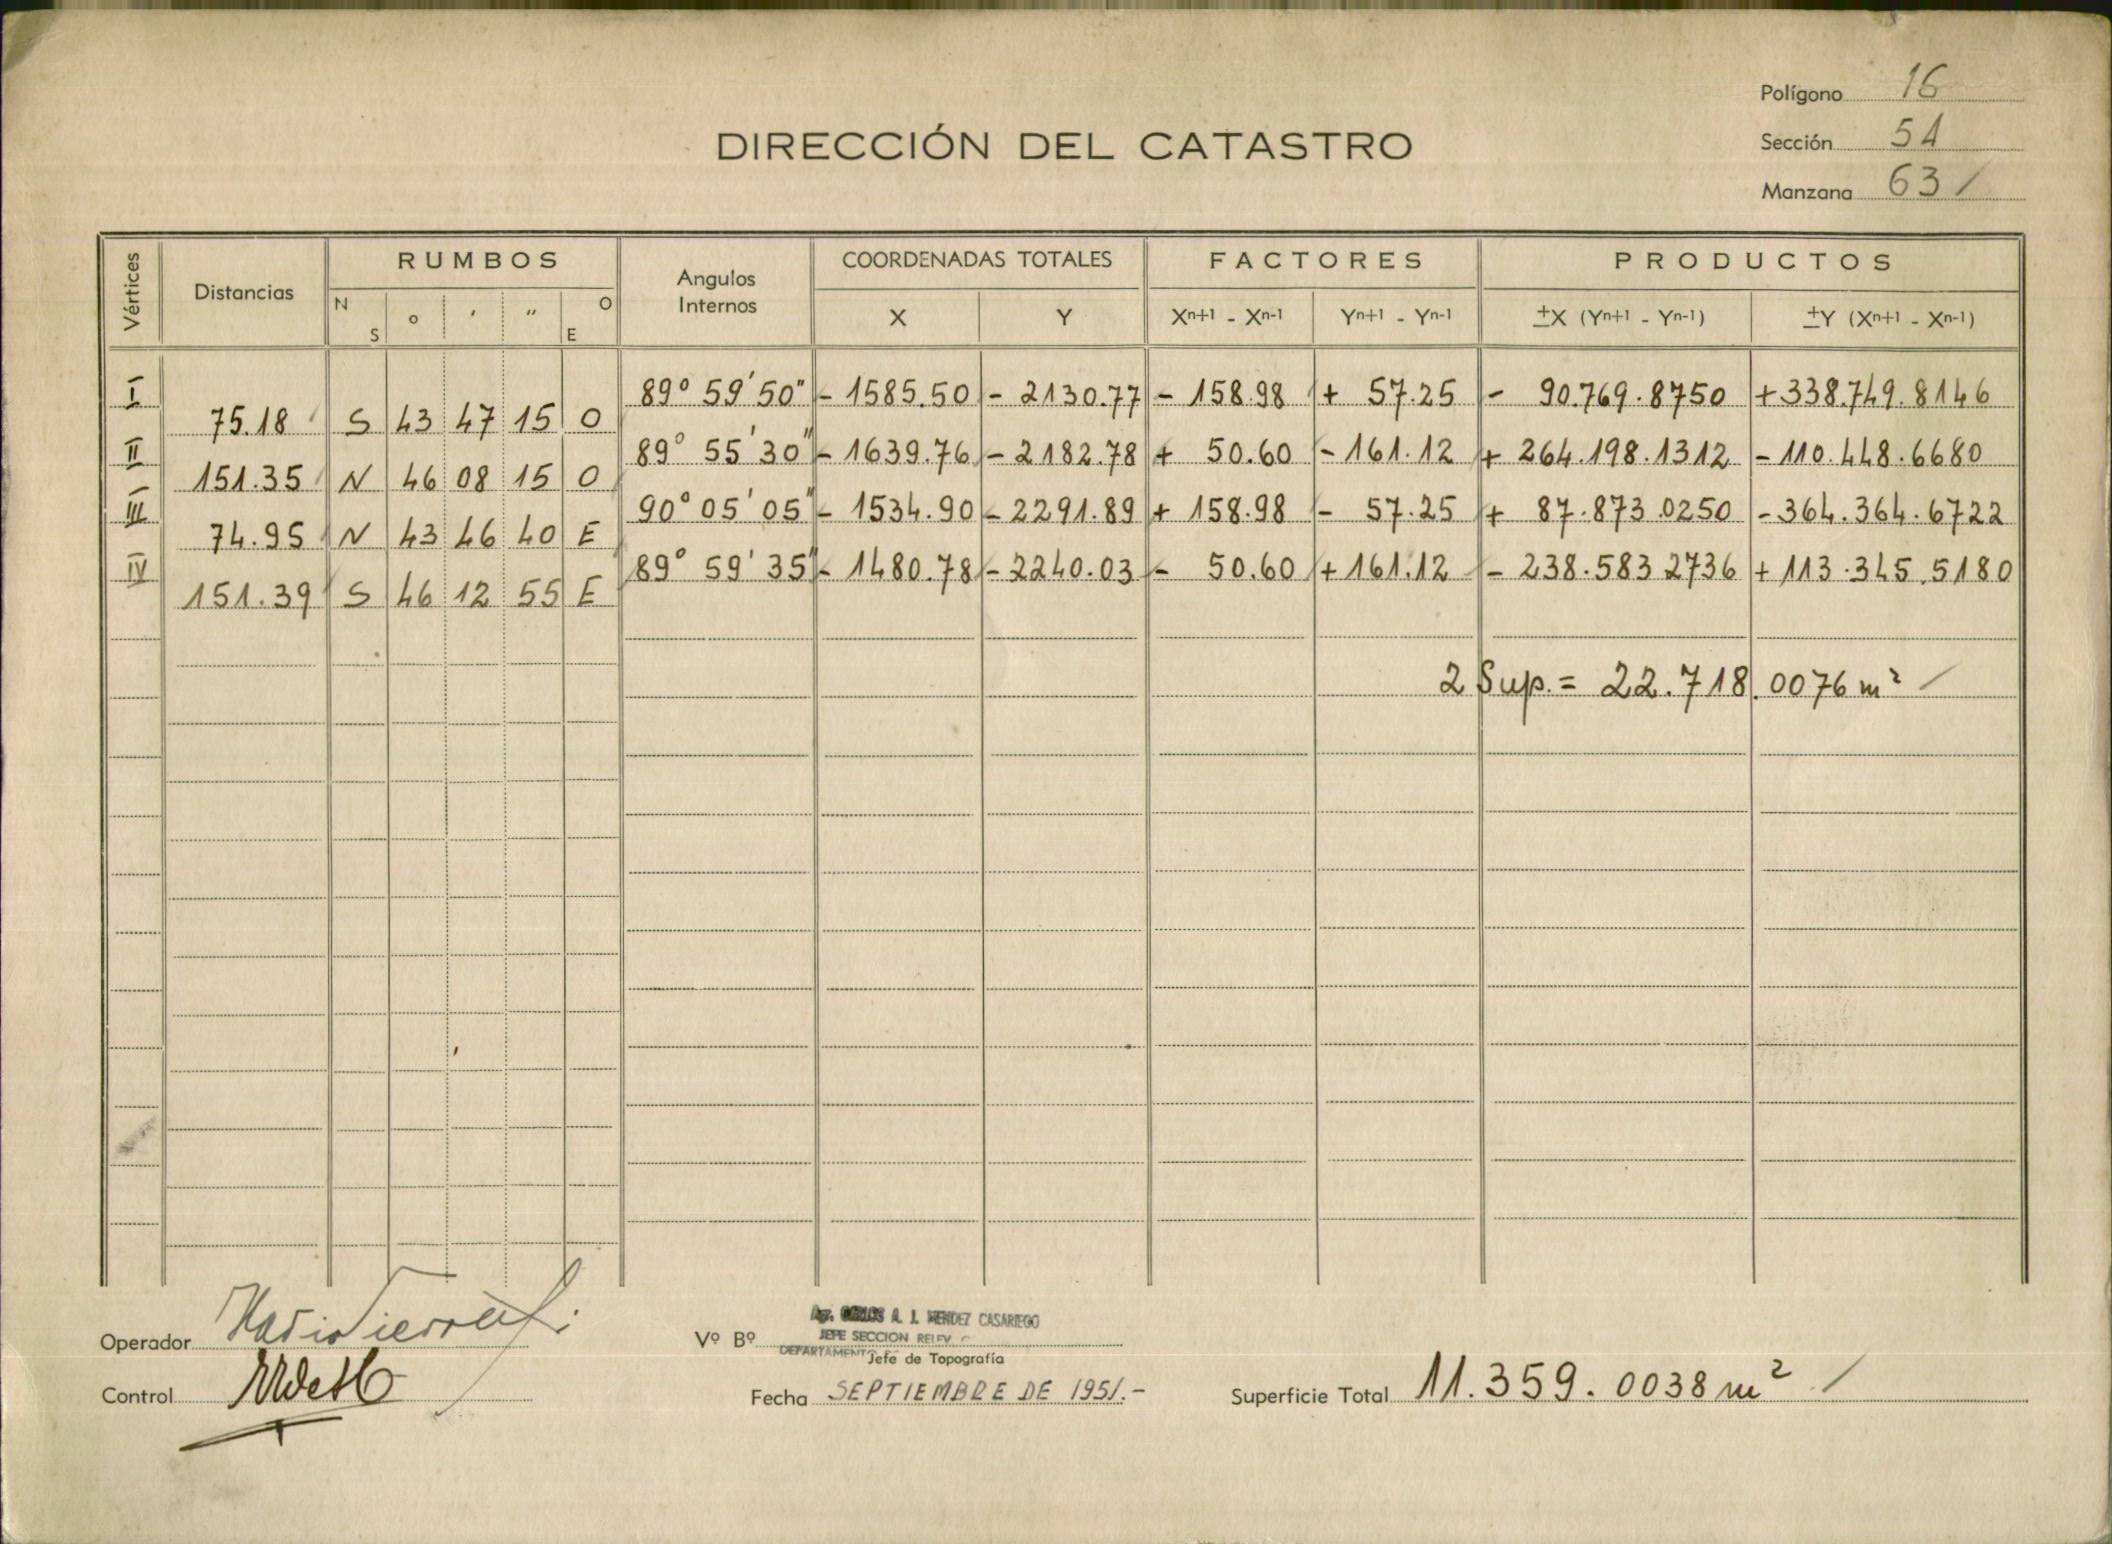 Polígono 16
DIRECCIÓN DEL CATASTRO
Sección 51
Manzana 63 /
Vértices Distancias RUMBOS Angulos Internos COORDENADAS TOTALES FACTORES PRODUCTOS
N S ° ′ ″ O E X Y Xn+1 - Xn-1 Yn+1 - Yn-1 ±X (Yn+1 - Yn-1) ±Y (Xn+1 - Xn-1)
I 89° 59' 50" - 1585.50 - 2130.77 - 158.98 + 57.25 - 90.769.8750 + 338.749.8146
75.18 S 43 47 15 O
II 89° 55' 30" - 1639.76 - 2182.78 + 50.60 - 161.12 + 264.198.1312 - 110.448.6680
151.35 N 46 08 15 O
III 90° 05' 05" - 1534.90 - 2291.89 + 158.98 - 57.25 + 87.873.0250 - 364.364.6722
74.95 N 43 46 40 E
IV 89° 59' 35" - 1480.78 - 2240.03 - 50.60 + 161.12 - 238.583 2736 + 113.345.5180
151.39 S 46 12 55 E
2 Sup. = 22.718.0076 m² /
Operador
Vº Bº Agr. CARLOS A. J. MENDEZ CASARIEGO
JEFE SECCION RELEV
DEPARTAMENTO Jefe de Topografía
Control
Fecha SEPTIEMBRE DE 1951.-
Superficie Total 11.359.0038 m² /